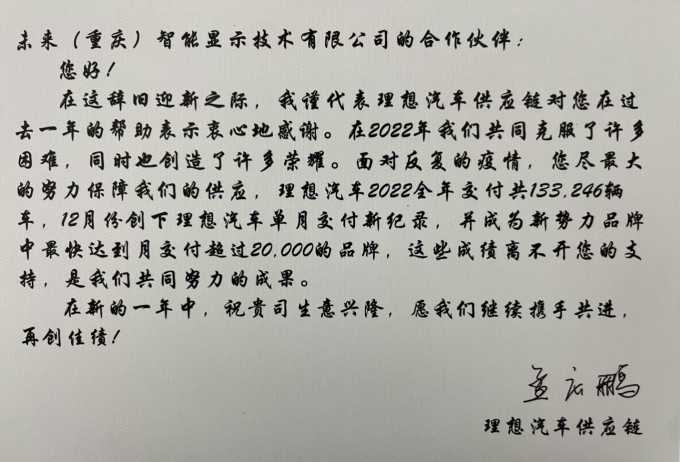 未来（重庆）智能显示技术有限公司的合作伙伴：
您好！
在这辞旧迎新之际，我谨代表理想汽车供应链对您在过
去一年的帮助表示衷心地感谢。在2022年我们共同克服了许多
困难，同时也创造了许多荣耀。面对反复的疫情，您尽最大
的努力保障我们的供应，理想汽车2022全年交付共133,246辆
车，12月份创下理想汽车单月交付新纪录，并成为新势力品牌
中最快达到月交付超过20,000的品牌，这些成绩离不开您的支
持，是我们共同努力的成果。
在新的一年中，祝贵司生意兴隆，愿我们继续携手共进，
再创佳绩！
孟庆鹏
理想汽车供应链